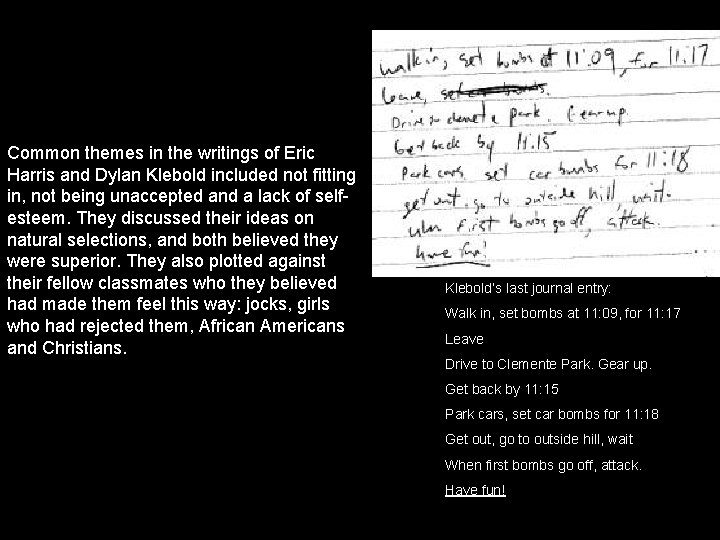 Common themes in the writings of Eric
Harris and Dylan Klebold included not fitting
in, not being unaccepted and a lack of self-
esteem. They discussed their ideas on
natural selections, and both believed they
were superior. They also plotted against
their fellow classmates who they believed
had made them feel this way: jocks, girls
who had rejected them, African Americans
and Christians.
walk in, set bombs at 11:09, for 11:17
leave, set car bombs.
Drive to clemete park. Gear up.
Get back by 11:15
Park cars, set car bombs for 11:18
get out, go to outside hill, wait.
when first bombs go off, attack.
have fun!
Klebold's last journal entry:
Walk in, set bombs at 11:09, for 11:17
Leave
Drive to Clemente Park. Gear up.
Get back by 11:15
Park cars, set car bombs for 11:18
Get out, go to outside hill, wait
When first bombs go off, attack.
Have fun!